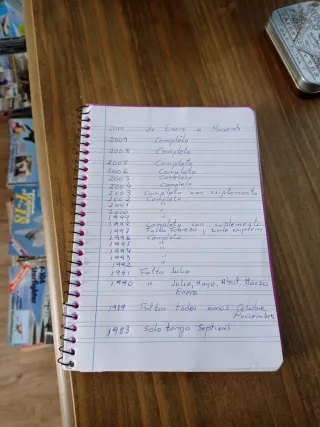 2010 de Enero a
2009 Completo
2008 Completo
2007 Completo
2006 Completo
2005 Completo
2004 Completo
2003 Completo con suplemento
2002 Completo
2001 "
2000 "
1999 "
1998 Completo con suplemento
1997 Falta Febrero y
1996 Completo
1995 "
1994 "
1993 "
1992 "
1991 Falta Julio
1990 " Julio, Mayo, Abril, Marzo
Enero
1989 Faltan todos menos Octubre,
Noviembre
1983 Solo tengo